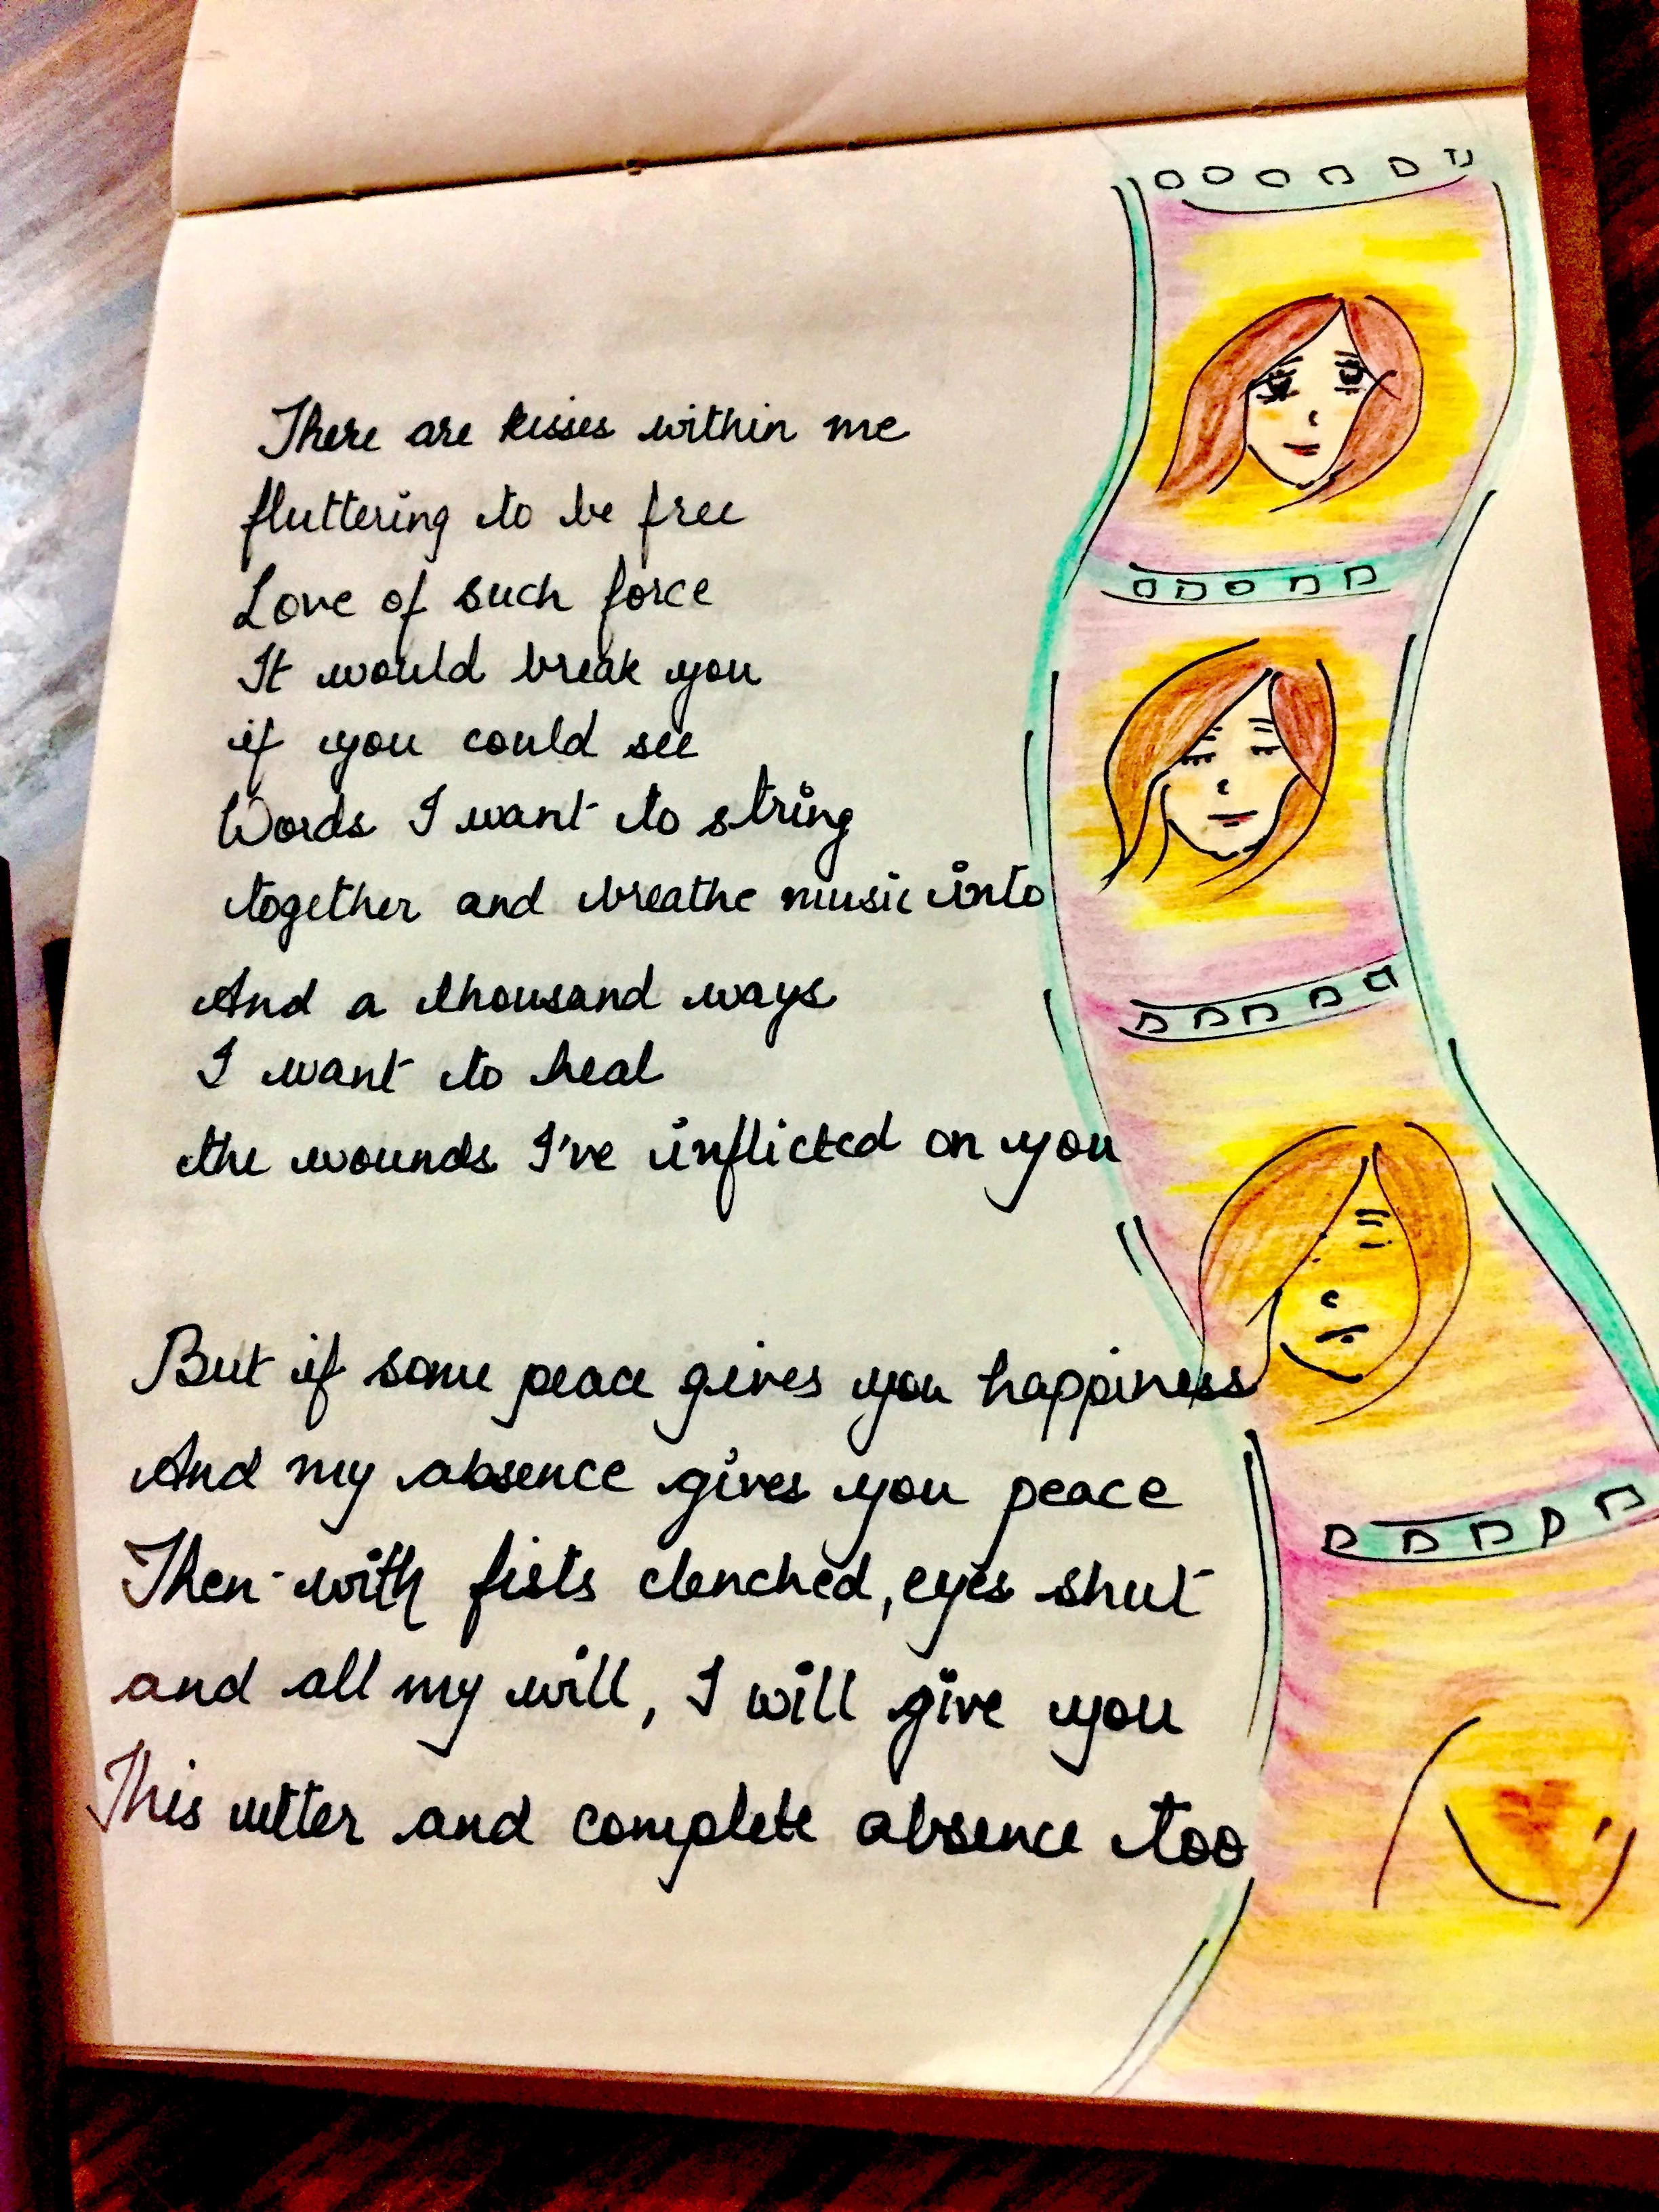 There are kisses within me
fluttering to be free
Love of such force
It would break you
if you could see
Words I want to string
together and breathe music into
And a thousand ways
I want to heal
the wounds I've inflicted on you
But if some peace gives you happiness
And my absence gives you peace
Then with fists clenched, eyes shut
and all my will, I will give you
This utter and complete absence too